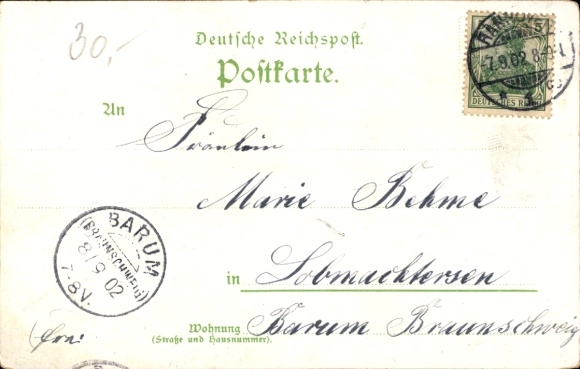 30,-
Deutsche Reichspost.
Postkarte.
HANNOVER
7.9.02 8-9
DEUTSCHES REICH
An
Fräulein
Marie Behme
BARUM
(BRAUNSCHWEIG)
8/9 02
7-8V.
in Lobmachtersen
Wohnung
(Straße und Hausnummer).
Barum Braunschweig